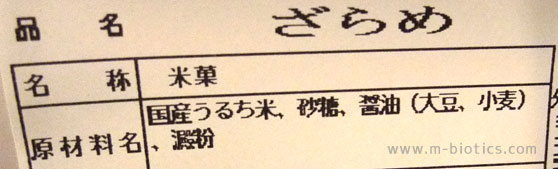 品名 ざらめ
名称 米菓
原材料名 国産うるち米、砂糖、醤油（大豆、小麦）
、澱粉
www.m-biotics.com